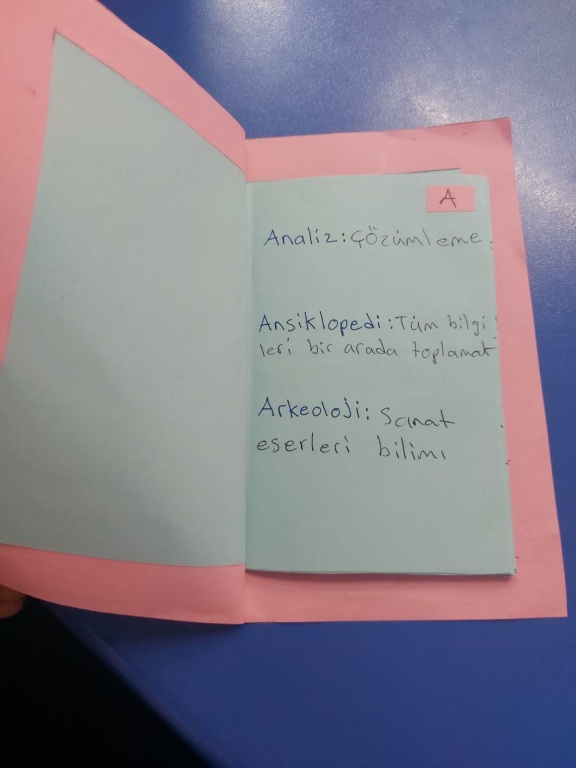 A
Analiz: Çözümleme.
Ansiklopedi: Tüm bilgi
leri bir arada toplamak
Arkeoloji: Sanat
eserleri bilimi